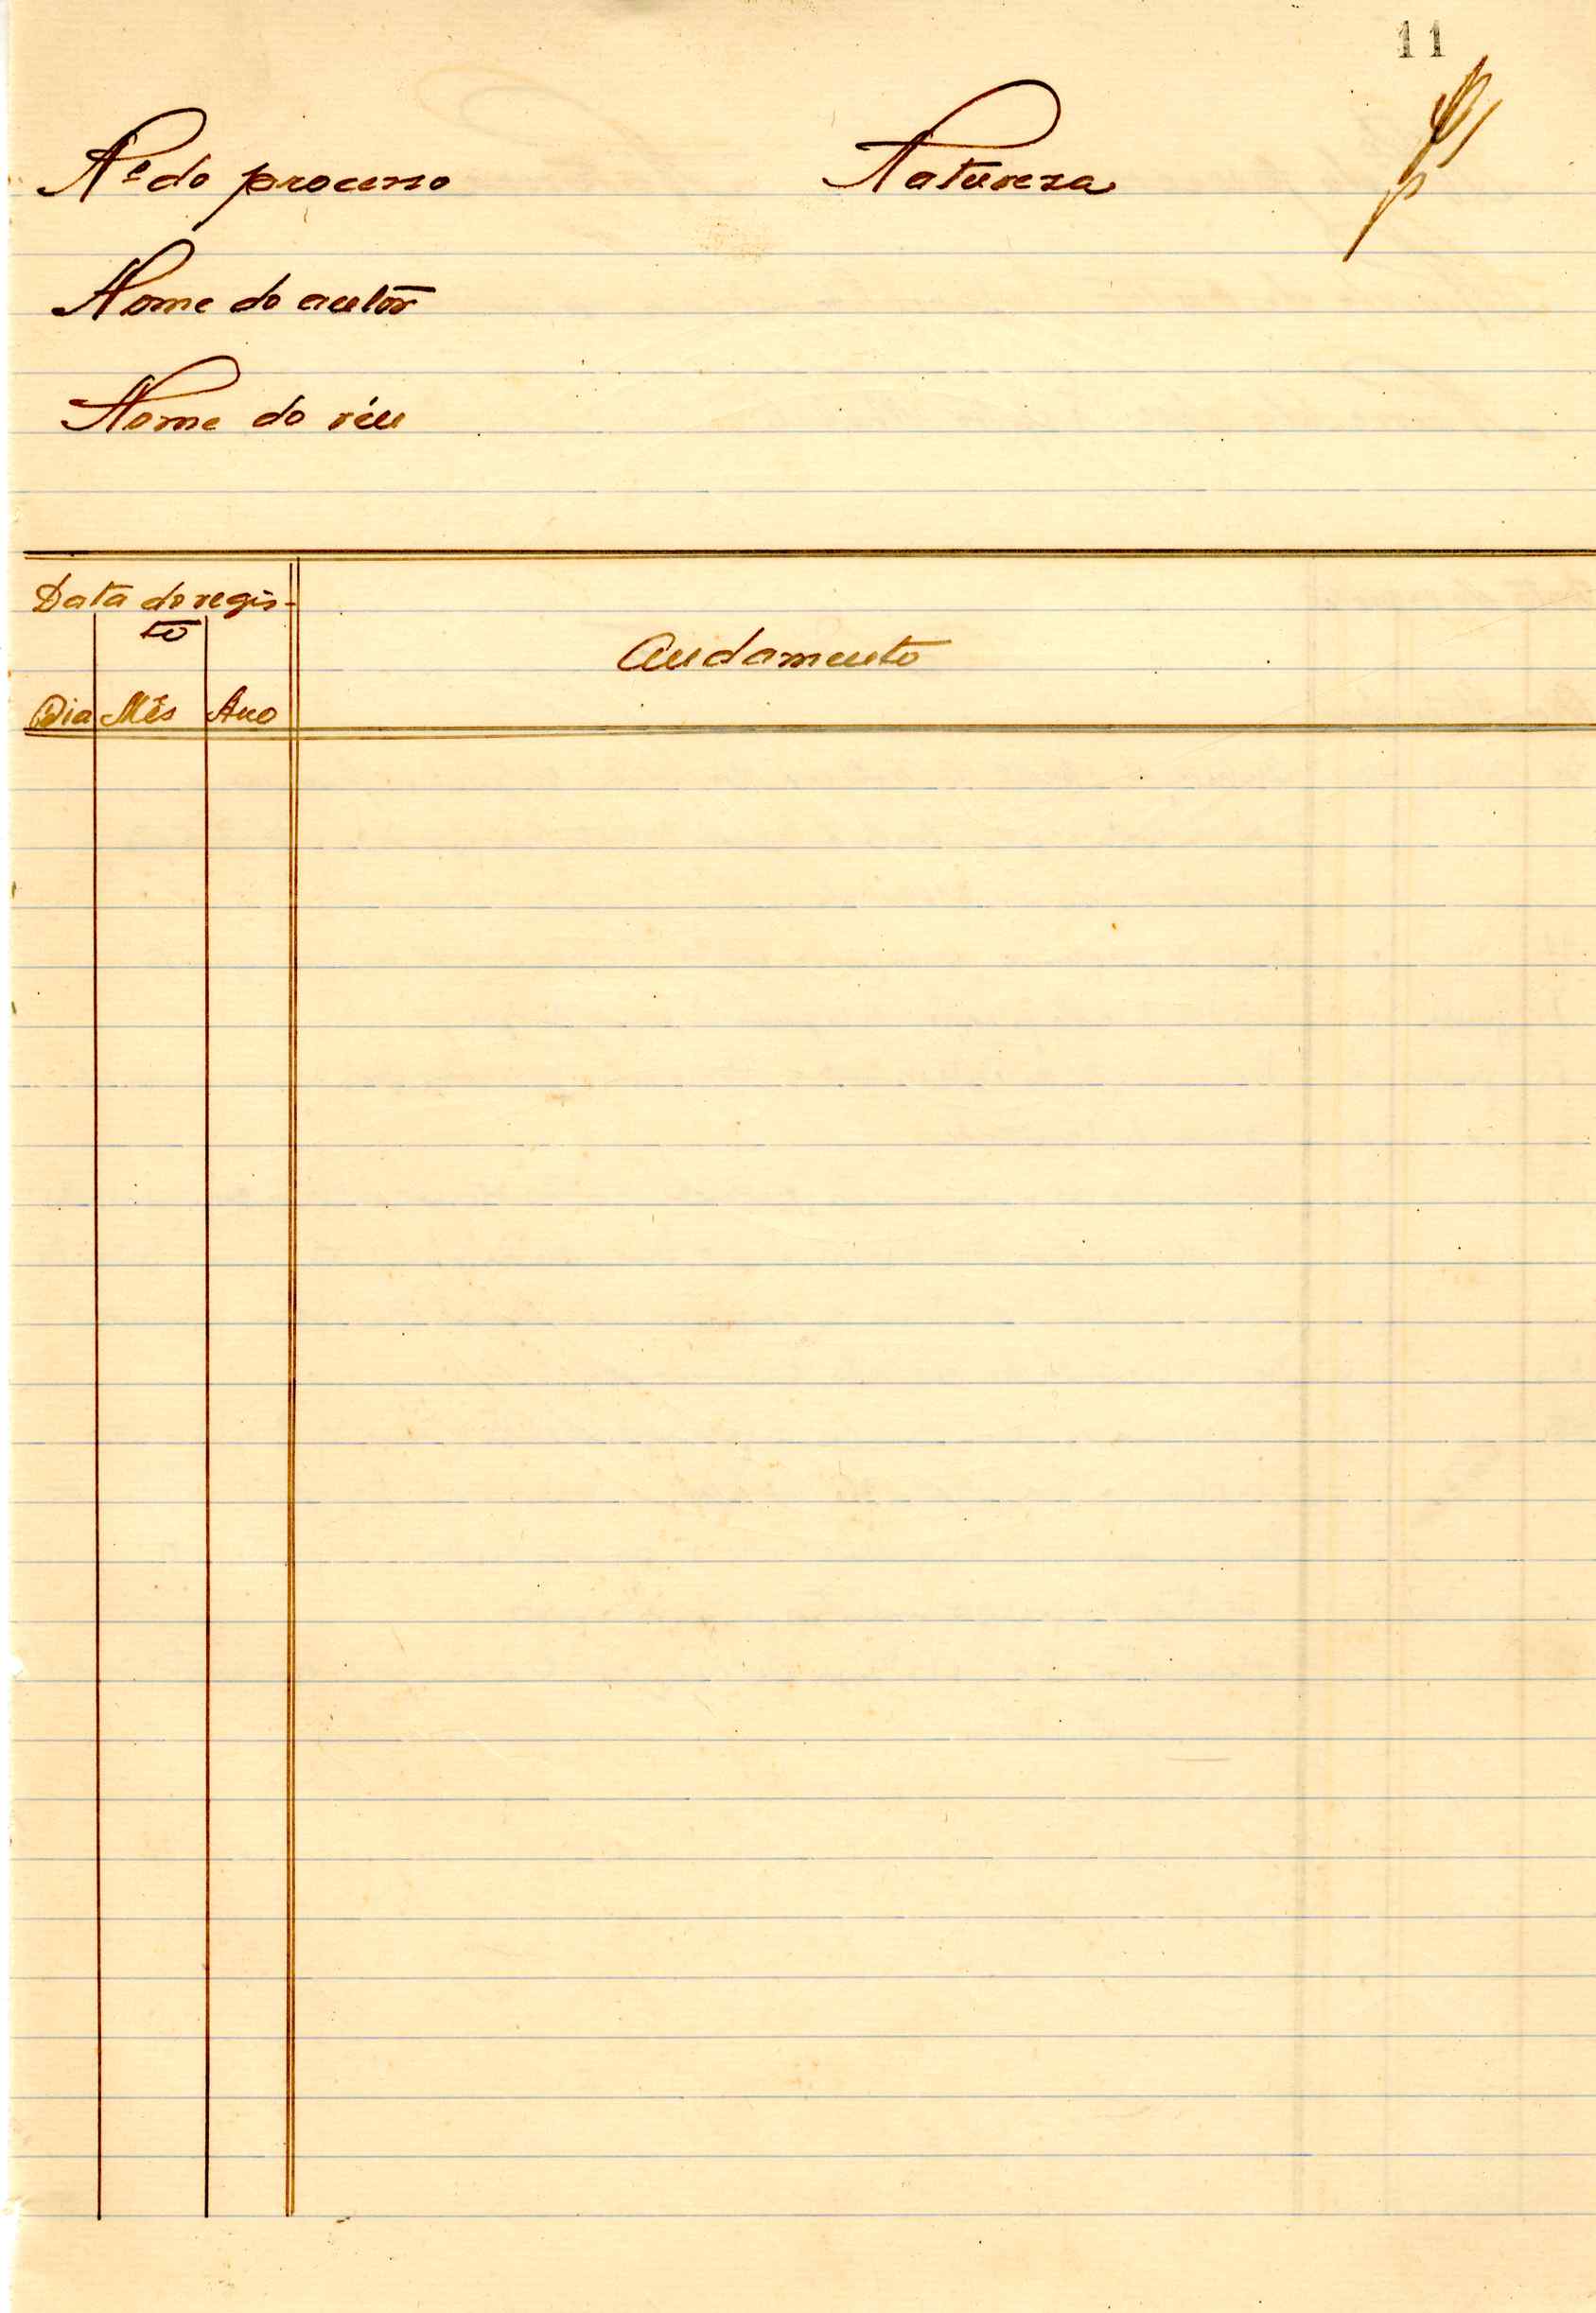 11
Nº do processo Natureza
Nome do autor
Nome do réu
Data do regis-
to
Andamento
Dia Mês Ano